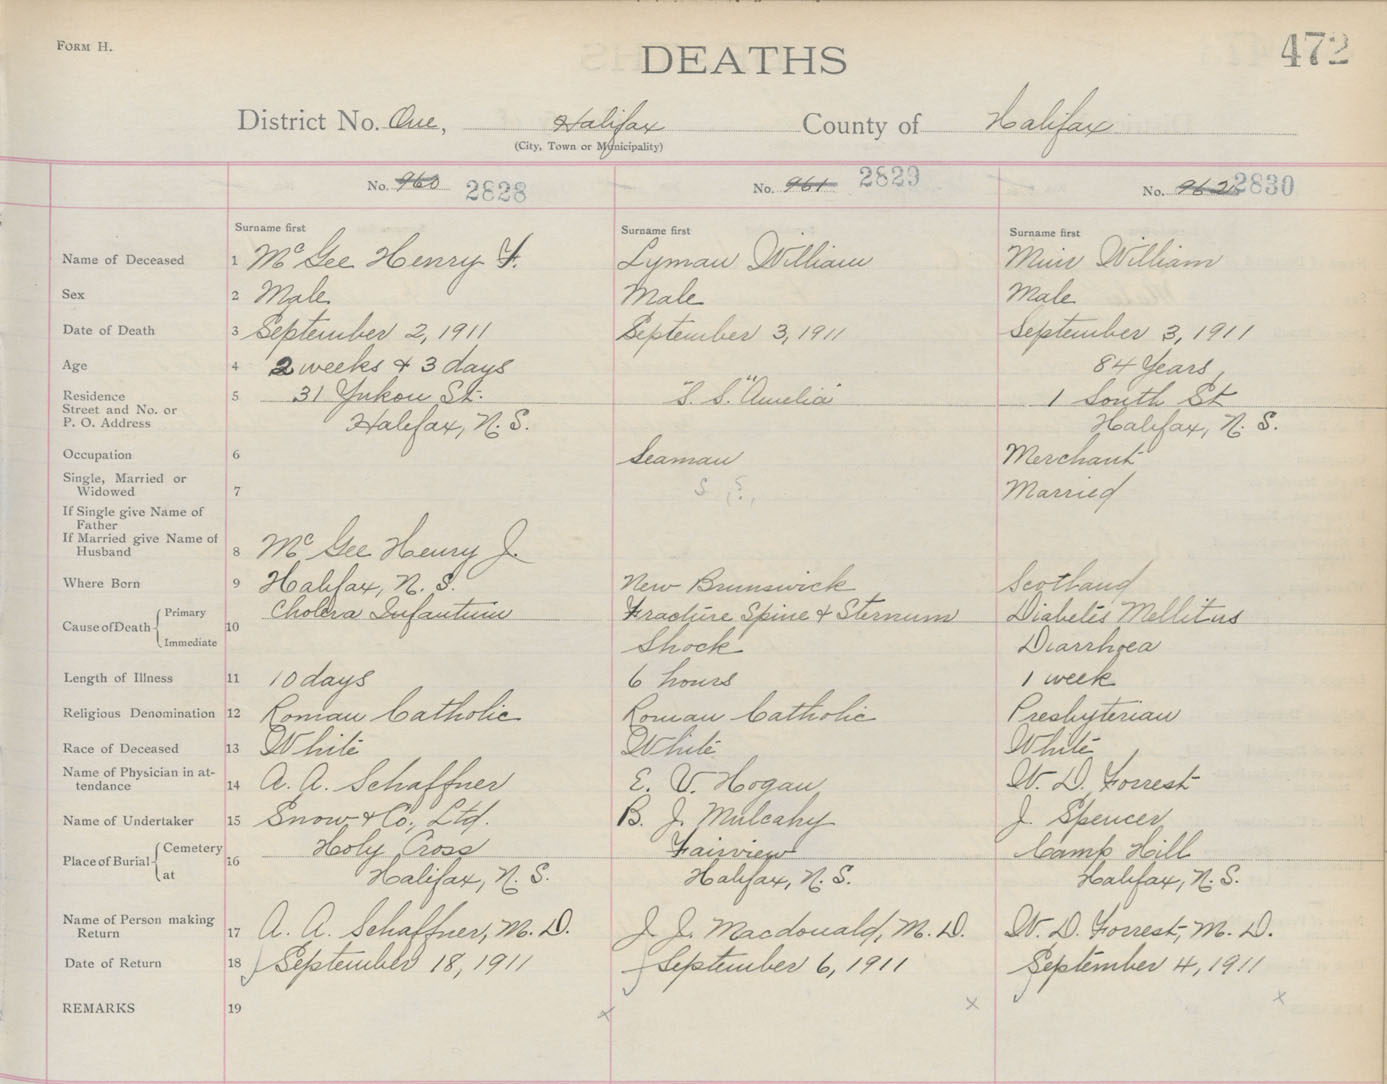 FORM H.
DEATHS
472
District No. One, Halifax County of Halifax
(City, Town or Municipality)
No. 960 2828 No. 961 2829 No. 962 2830
Surname first Surname first Surname first
Name of Deceased 1 Mc Gee Henry F. Lyman William Muir William
Sex 2 Male Male Male
Date of Death 3 September 2, 1911 September 3, 1911 September 3, 1911
Age 4 2 weeks & 3 days 84 Years
Residence 5 31 Yukon St. "S. S. "Amelia" 1 South St
Street and No. or
P. O. Address Halifax, N. S. Halifax, N. S.
Occupation 6 Seaman Merchant
Single, Married or
Widowed 7 S Married
If Single give Name of
Father
If Married give Name of
Husband 8 Mc Gee Henry J.
Where Born 9 Halifax, N. S. New Brunswick Scotland
Cause of Death Primary 10 Cholera Infantum Fracture Spine & Sternum Diabetis Mellitus
Immediate Shock Diarrhoea
Length of Illness 11 10 days 6 hours 1 week
Religious Denomination 12 Roman Catholic Roman Catholic Presbyterian
Race of Deceased 13 White White White
Name of Physician in at-
tendance 14 A. A. Schaffner E. V. Hogan W. D. Forrest
Name of Undertaker 15 Snow & Co., Ltd. B. J. Mulcahy J. Spencer
Place of Burial Cemetery 16 Holy Cross Fairview Camp Hill
at Halifax, N. S. Halifax, N. S. Halifax, N. S.
Name of Person making
Return 17 A. A. Schaffner, M. D. J. J. Macdonald, M. D. W. D. Forrest, M. D.
Date of Return 18 September 18, 1911 September 6, 1911 September 4, 1911
REMARKS 19 x x x